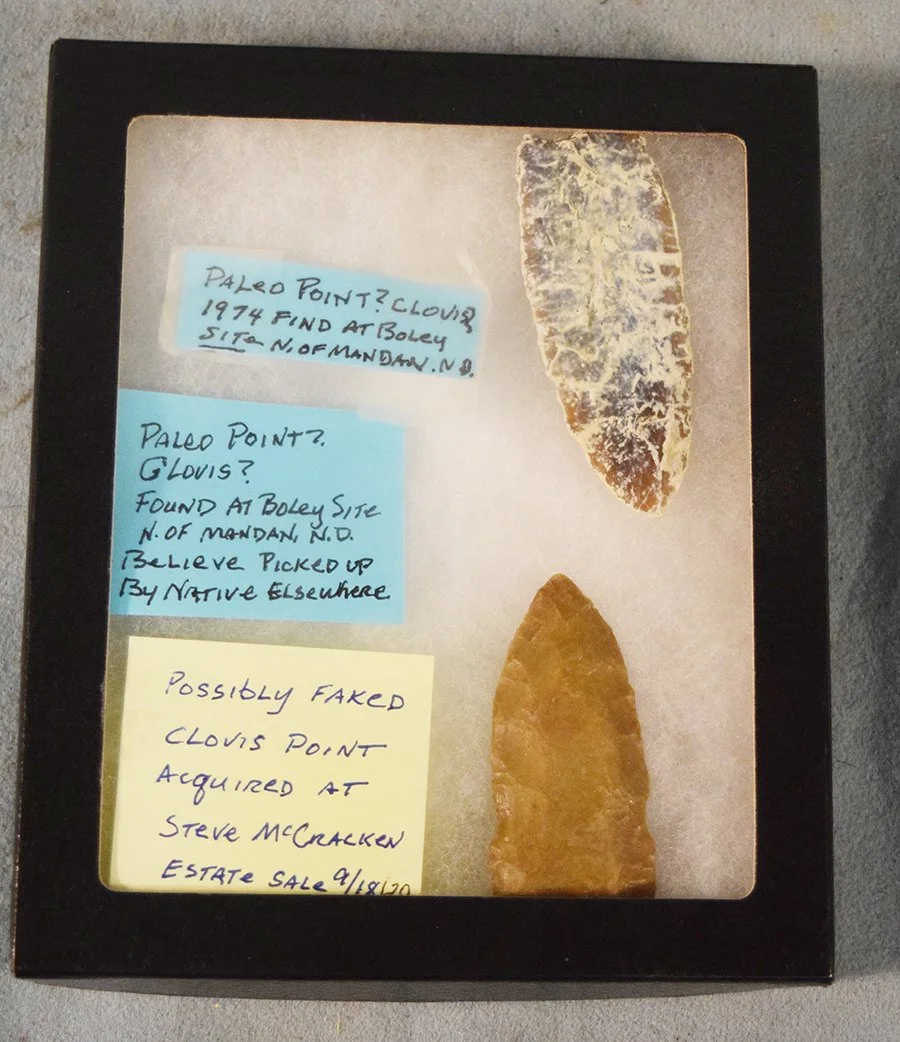 PALEO POINT? CLOVIS?
1974 FIND AT BOLEY
SITE N. OF MANDAN. N.D.
PALEO POINT?
CLOVIS?
FOUND AT BOLEY SITE
N. OF MANDAN, N.D.
BELIEVE PICKED UP
BY NATIVE ELSEWHERE
POSSIBLY FAKED
CLOVIS POINT
ACQUIRED AT
STEVE McCRACKEN
ESTATE SALE 9/18/20